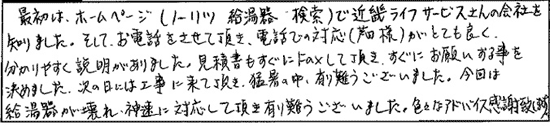 最初は、ホームページ(ノーリツ 給湯器 検索)で近畿ライフサービスさんの会社を
知りました。そして、お電話をさせて頂き、電話での対応( 様)がとても良く、
分かりやすく説明がありました。見積書もすぐにFaxして頂き、すぐにお願いする事を
決めました。次の日には工事に来て頂き、猛暑の中、有り難うございました。今回は
給湯器が壊れ、神速に対応して頂き有り難うございました。色々なアドバイス感謝致します